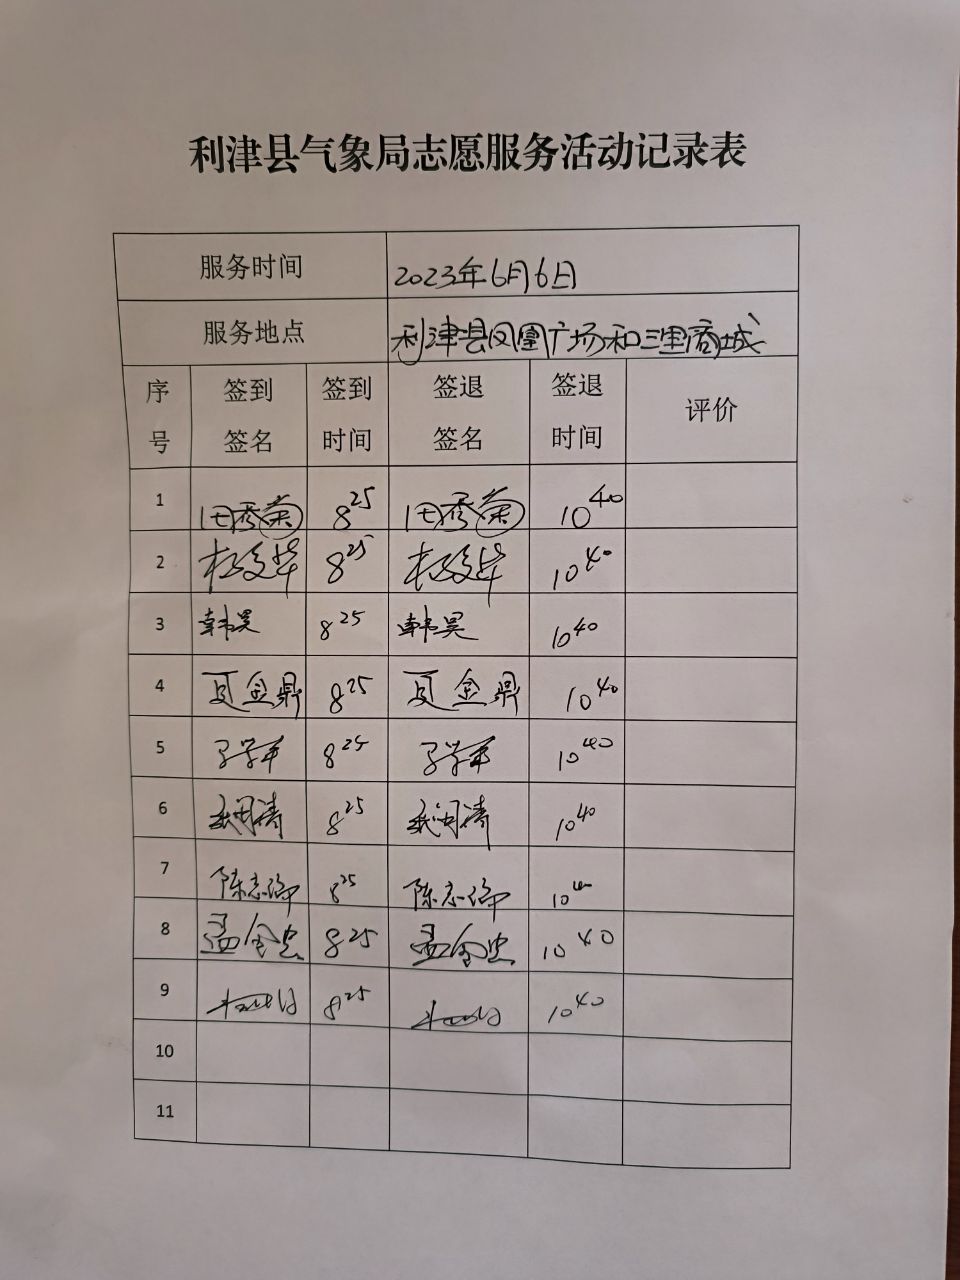 利津县气象局志愿服务活动记录表
服务时间 2023年6月6日
服务地点 利津县凤凰广场和三里商城
序号 签到签名 签到时间 签退签名 签退时间 评价
1 田秀菊 8 25 田秀菊 10 40
2 8 25 10 40
3 韩昊 8 25 韩昊 10 40
4 夏金鼎 8 25 夏金鼎 10 40
5 8 25 10 40
6 8 25 10 40
7 陈志 8 25 陈志 10 40
8 孟金忠 8 25 孟金忠 10 40
9 8 25 10 40
10
11